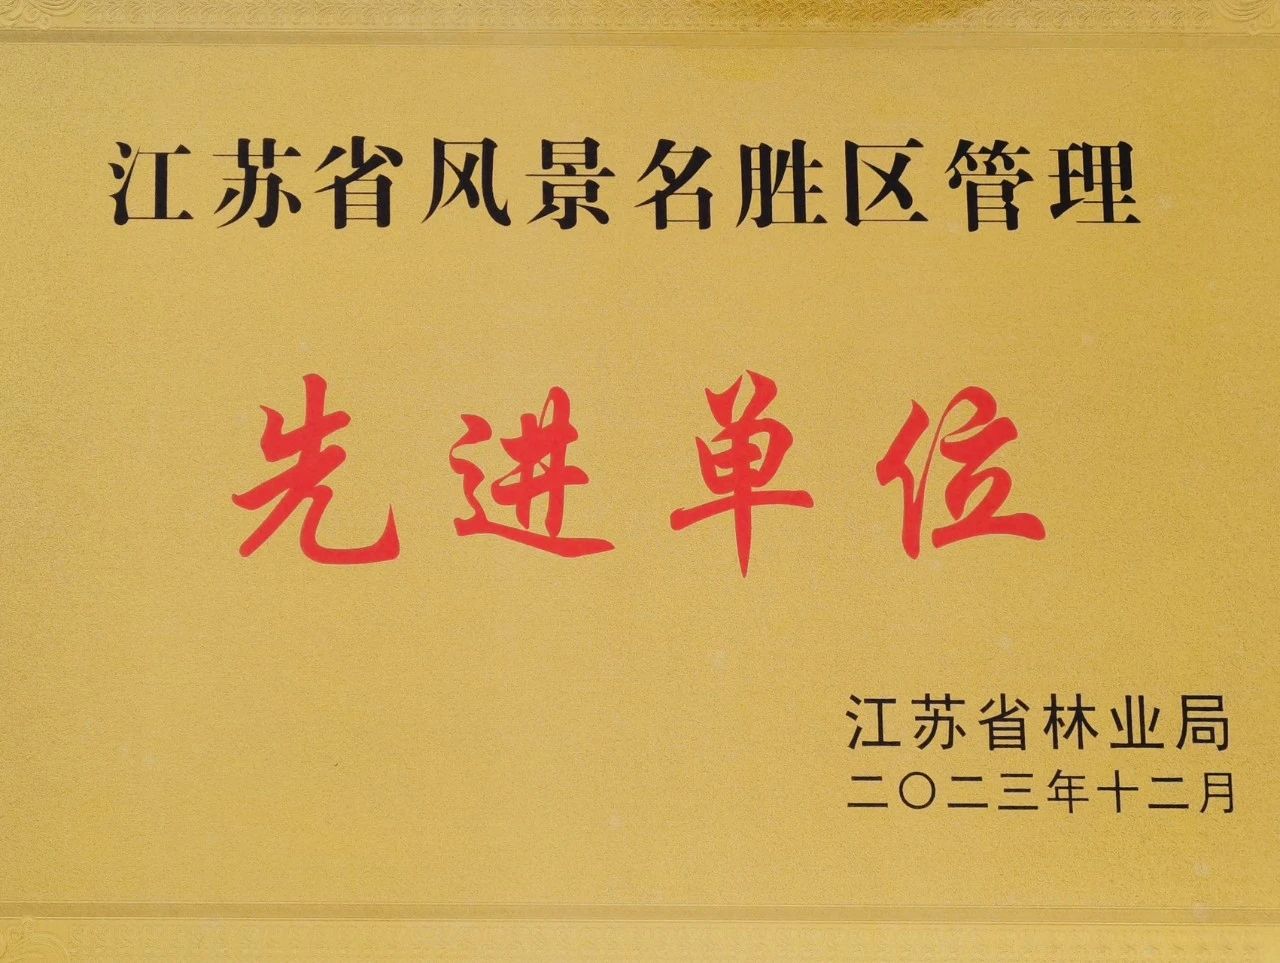 江苏省风景名胜区管理
先进单位
江苏省林业局
二〇二三年十二月